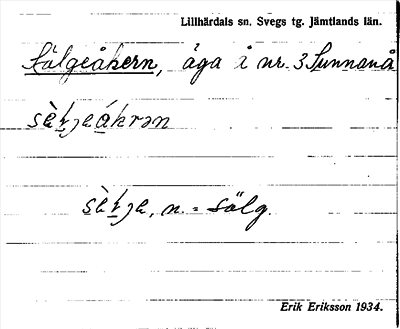 Lillhärdals sn. Svegs tg. Jämtlands län.
Sälgeåkern, åga å nr. 3 Sunnanå
n. = sälg.
Erik Eriksson 1934.